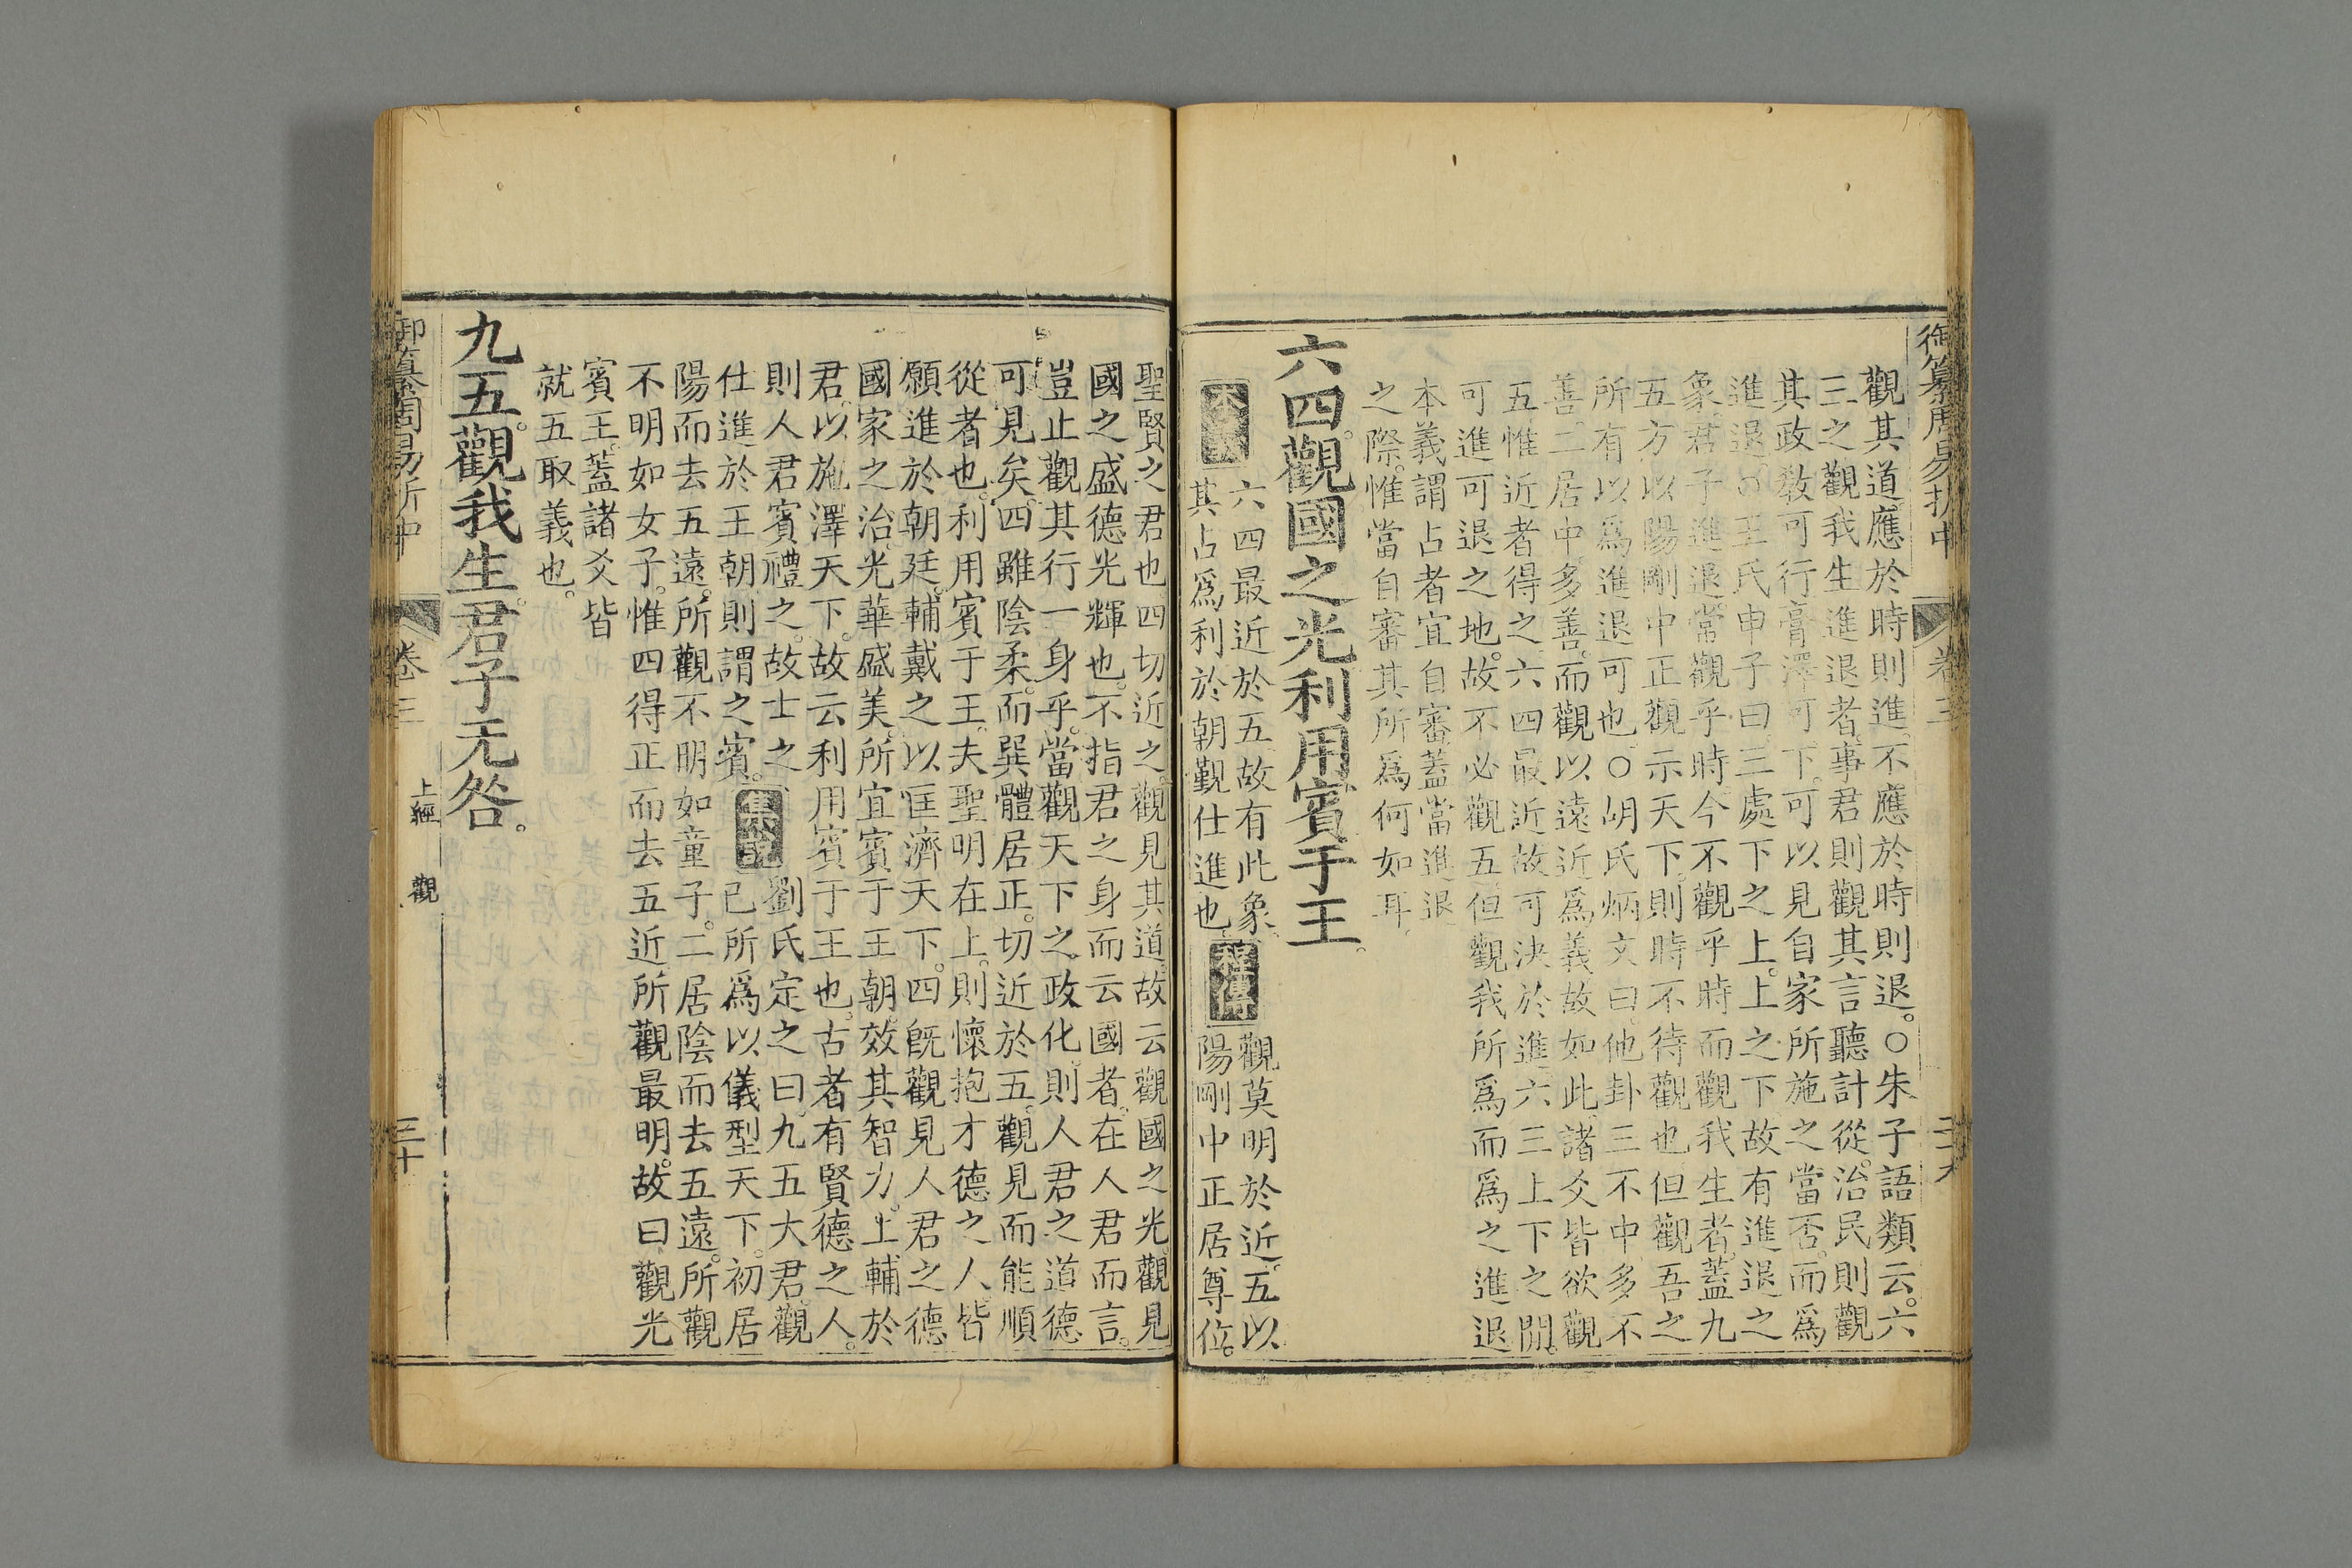 御纂周易折中 卷三 二十九
觀其道。應於時則進。不應於時則退。○朱子語類云。六
三之觀我生進退者。事君則觀其言聽計從。治民則觀
其政教可行。膏澤可下。可以見自家所施之當否。而爲
進退。○王氏申子曰。三處下之上。上之下。故有進退之
象。君子進退。常觀乎時。今不觀乎時而觀我生者。蓋九
五方以陽剛中正觀示天下。則時不待觀也。但觀吾之
所有以爲進退可也。○胡氏炳文曰。他卦三不中多不
善。二居中多善。而觀以遠近爲義。故如此。諸爻皆欲觀
五。惟近者得之。六四最近。故可決於進。六三上下之間。
可進可退之地。故不必觀五。但觀我所爲而爲之進退。
本義謂占者宜自審。蓋當進退
之際。惟當自審其所爲何如耳。
六四。觀國之光利用賓于王。
本義
六四最近於五。故有此象。
其占爲利於朝覲仕進也
程傳
觀莫明於近。五以
陽剛中正居尊位。
聖賢之君也。四切近之。觀見其道。故云觀國之光。觀見
國之盛德光輝也。不指君之身而云國者。在人君而言。
豈止觀其行一身乎。當觀天下之政化。則人君之道德
可見矣。四雖陰柔。而巽體居正。切近於五。觀見而能順
從者也。利用賓于王。夫聖明在上。則懷抱才德之人。皆
願進於朝廷。輔戴之以匡濟天下。四旣觀見人君之德
國家之治。光華盛美。所宜賓于王朝。效其智力。上輔於
君。以施澤天下。故云利用賓于王也。古者有賢德之人。
則人君賓禮之。故士之
仕進於王朝。則謂之賓。
集說
劉氏定之曰。九五大君。觀
己所爲以儀型天下。初居
陽而去五遠。所觀不明如童子。二居陰而去五遠。所觀
不明如女子。惟四得正而去五近所觀最明。故曰觀光
賓王。蓋諸爻皆
就五取義也。
九五。觀我生。君子无咎。
御纂周易折中 卷三 上經 觀 三十